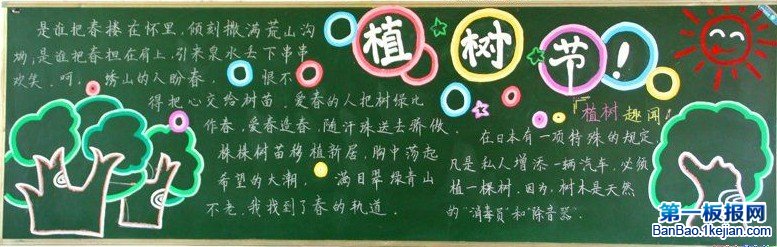 植树节!
是谁把春搂在怀里,倾刻撒满荒山沟
坳;是谁把春担在肩上,引来泉水丢下串串
欢笑。呵,绣山的人盼春。恨不
得把心交给树苗。爱春的人把树绿比
作春,爱春造春,随汗珠送去骄傲。
株株树苗移植新居,胸中荡起
希望的大潮。满目翠绿青山
不老,我找到了春的轨道。
植树趣闻!
在日本有一项特殊的规定,
凡是私人增添一辆汽车,必须
植一棵树,因为,树木是天然
的"消毒员"和"除音器。
第一板报网
BanBao.1kejian.com